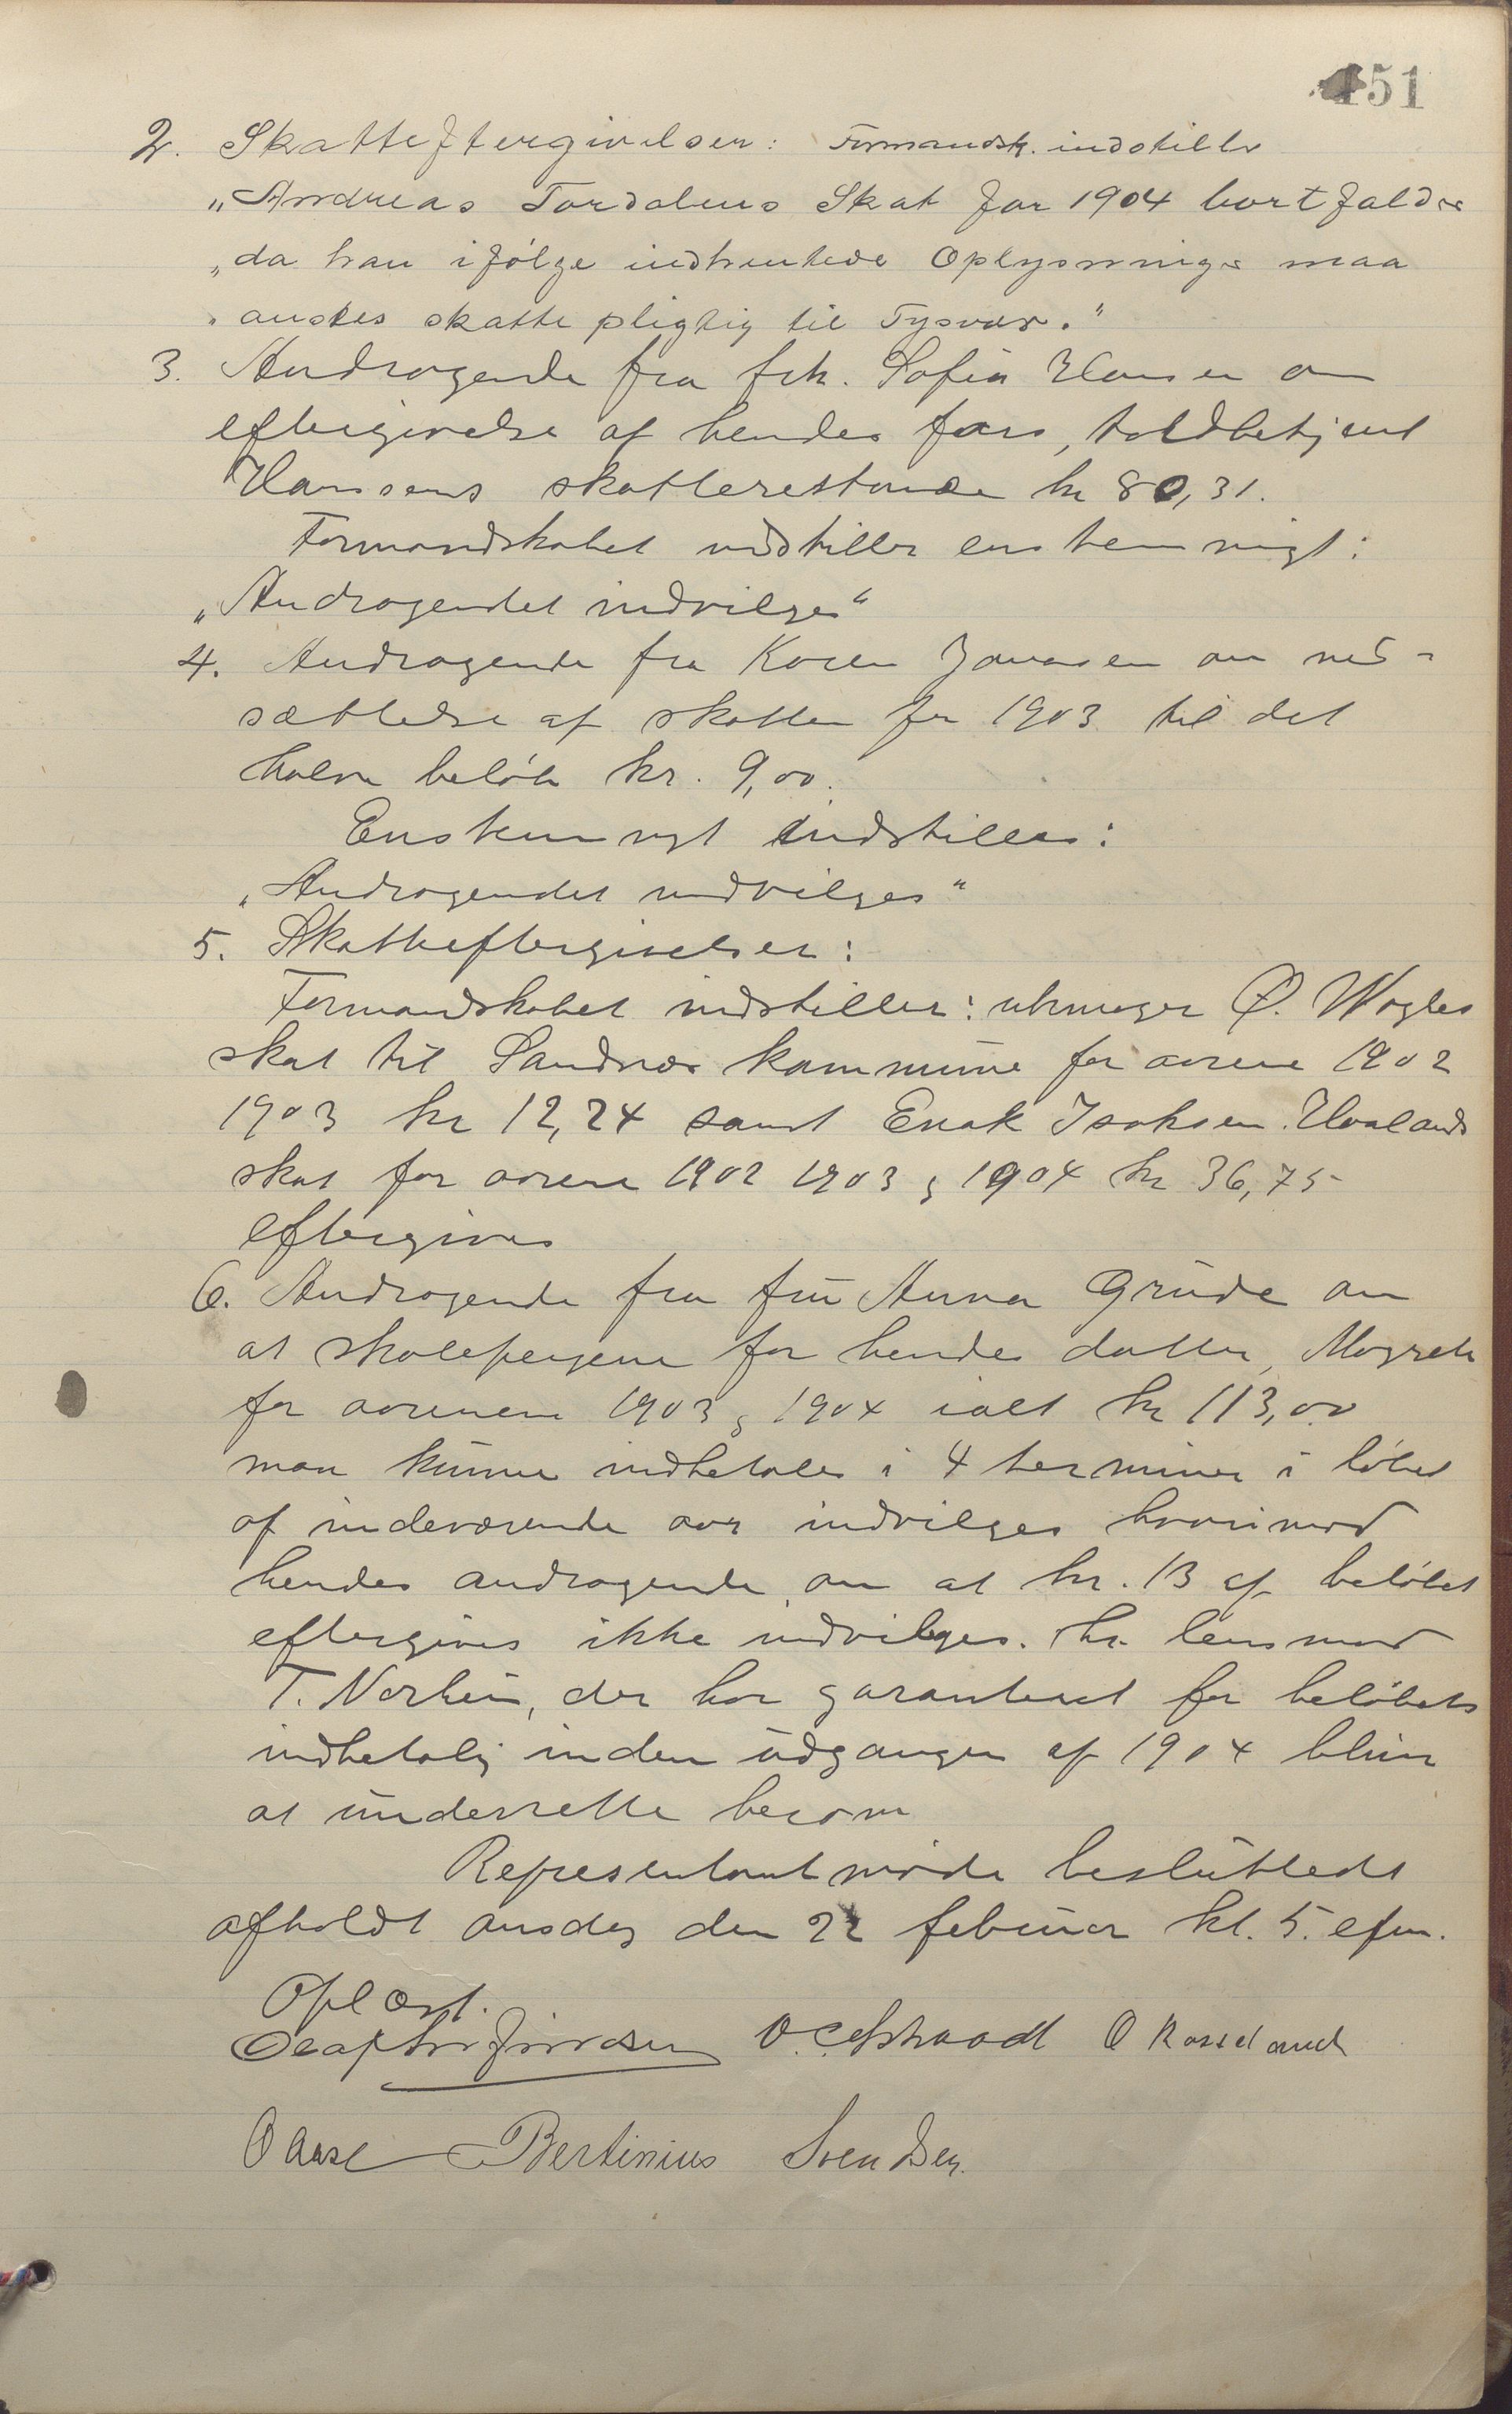 451
2. Skatteeftergivelser: Formandsk. indstiller
"Andreas Tordalens Skat for 1904 bortfalder
"da han ifølge indhentede Oplysninger maa
"ansees skattepligtig til Tysvær."
3. Andragende fra frk. Sofia Hansen om
eftergivelse af hendes fars, toldbetjent
Hansens skatterestance kr 80,31.
Formandskabet indstiller enstemmigt:
"Andragendet indvilges"
4. Andragende fra Karen Jonassen om ned-
sættelse af skatten for 1903 til det
halve beløb kr. 9,00.
Enstemmigt indstilles:
"Andragendet indvilges"
5. Skatteeftergivelser:
Formandskabet indstiller: uhrmager Ø. Wagles
skat til Sandnes kommune for aarene 1902
1903 kr 12,24 samt Enok Isaksen Hovlands
skat for aarene 1902 1903 & 1904 kr 36,75
eftergives
6. Andragende fra fru Anna Grude om
at skolepengene for hendes datter, Magreth
for aarene 1903 & 1904 ialt kr 113,00
maa kunne indbetales i 4 terminer i løbet
af indeværende aar indvilges hvorimod
hendes andragende om at kr. 13 af beløbet
eftergives ikke indvilges. Hr. lensmand
T. Norheim, der har garanteret for beløbets
indbetaling inden udgangen af 1904 bliver
at underrette herom
Repræsentantmøde besluttedes
afholdt onsdag den 22 februar kl. 5. efm.
Oplæst.
O. Rosseland
O Aase Bertinius Svendsen.